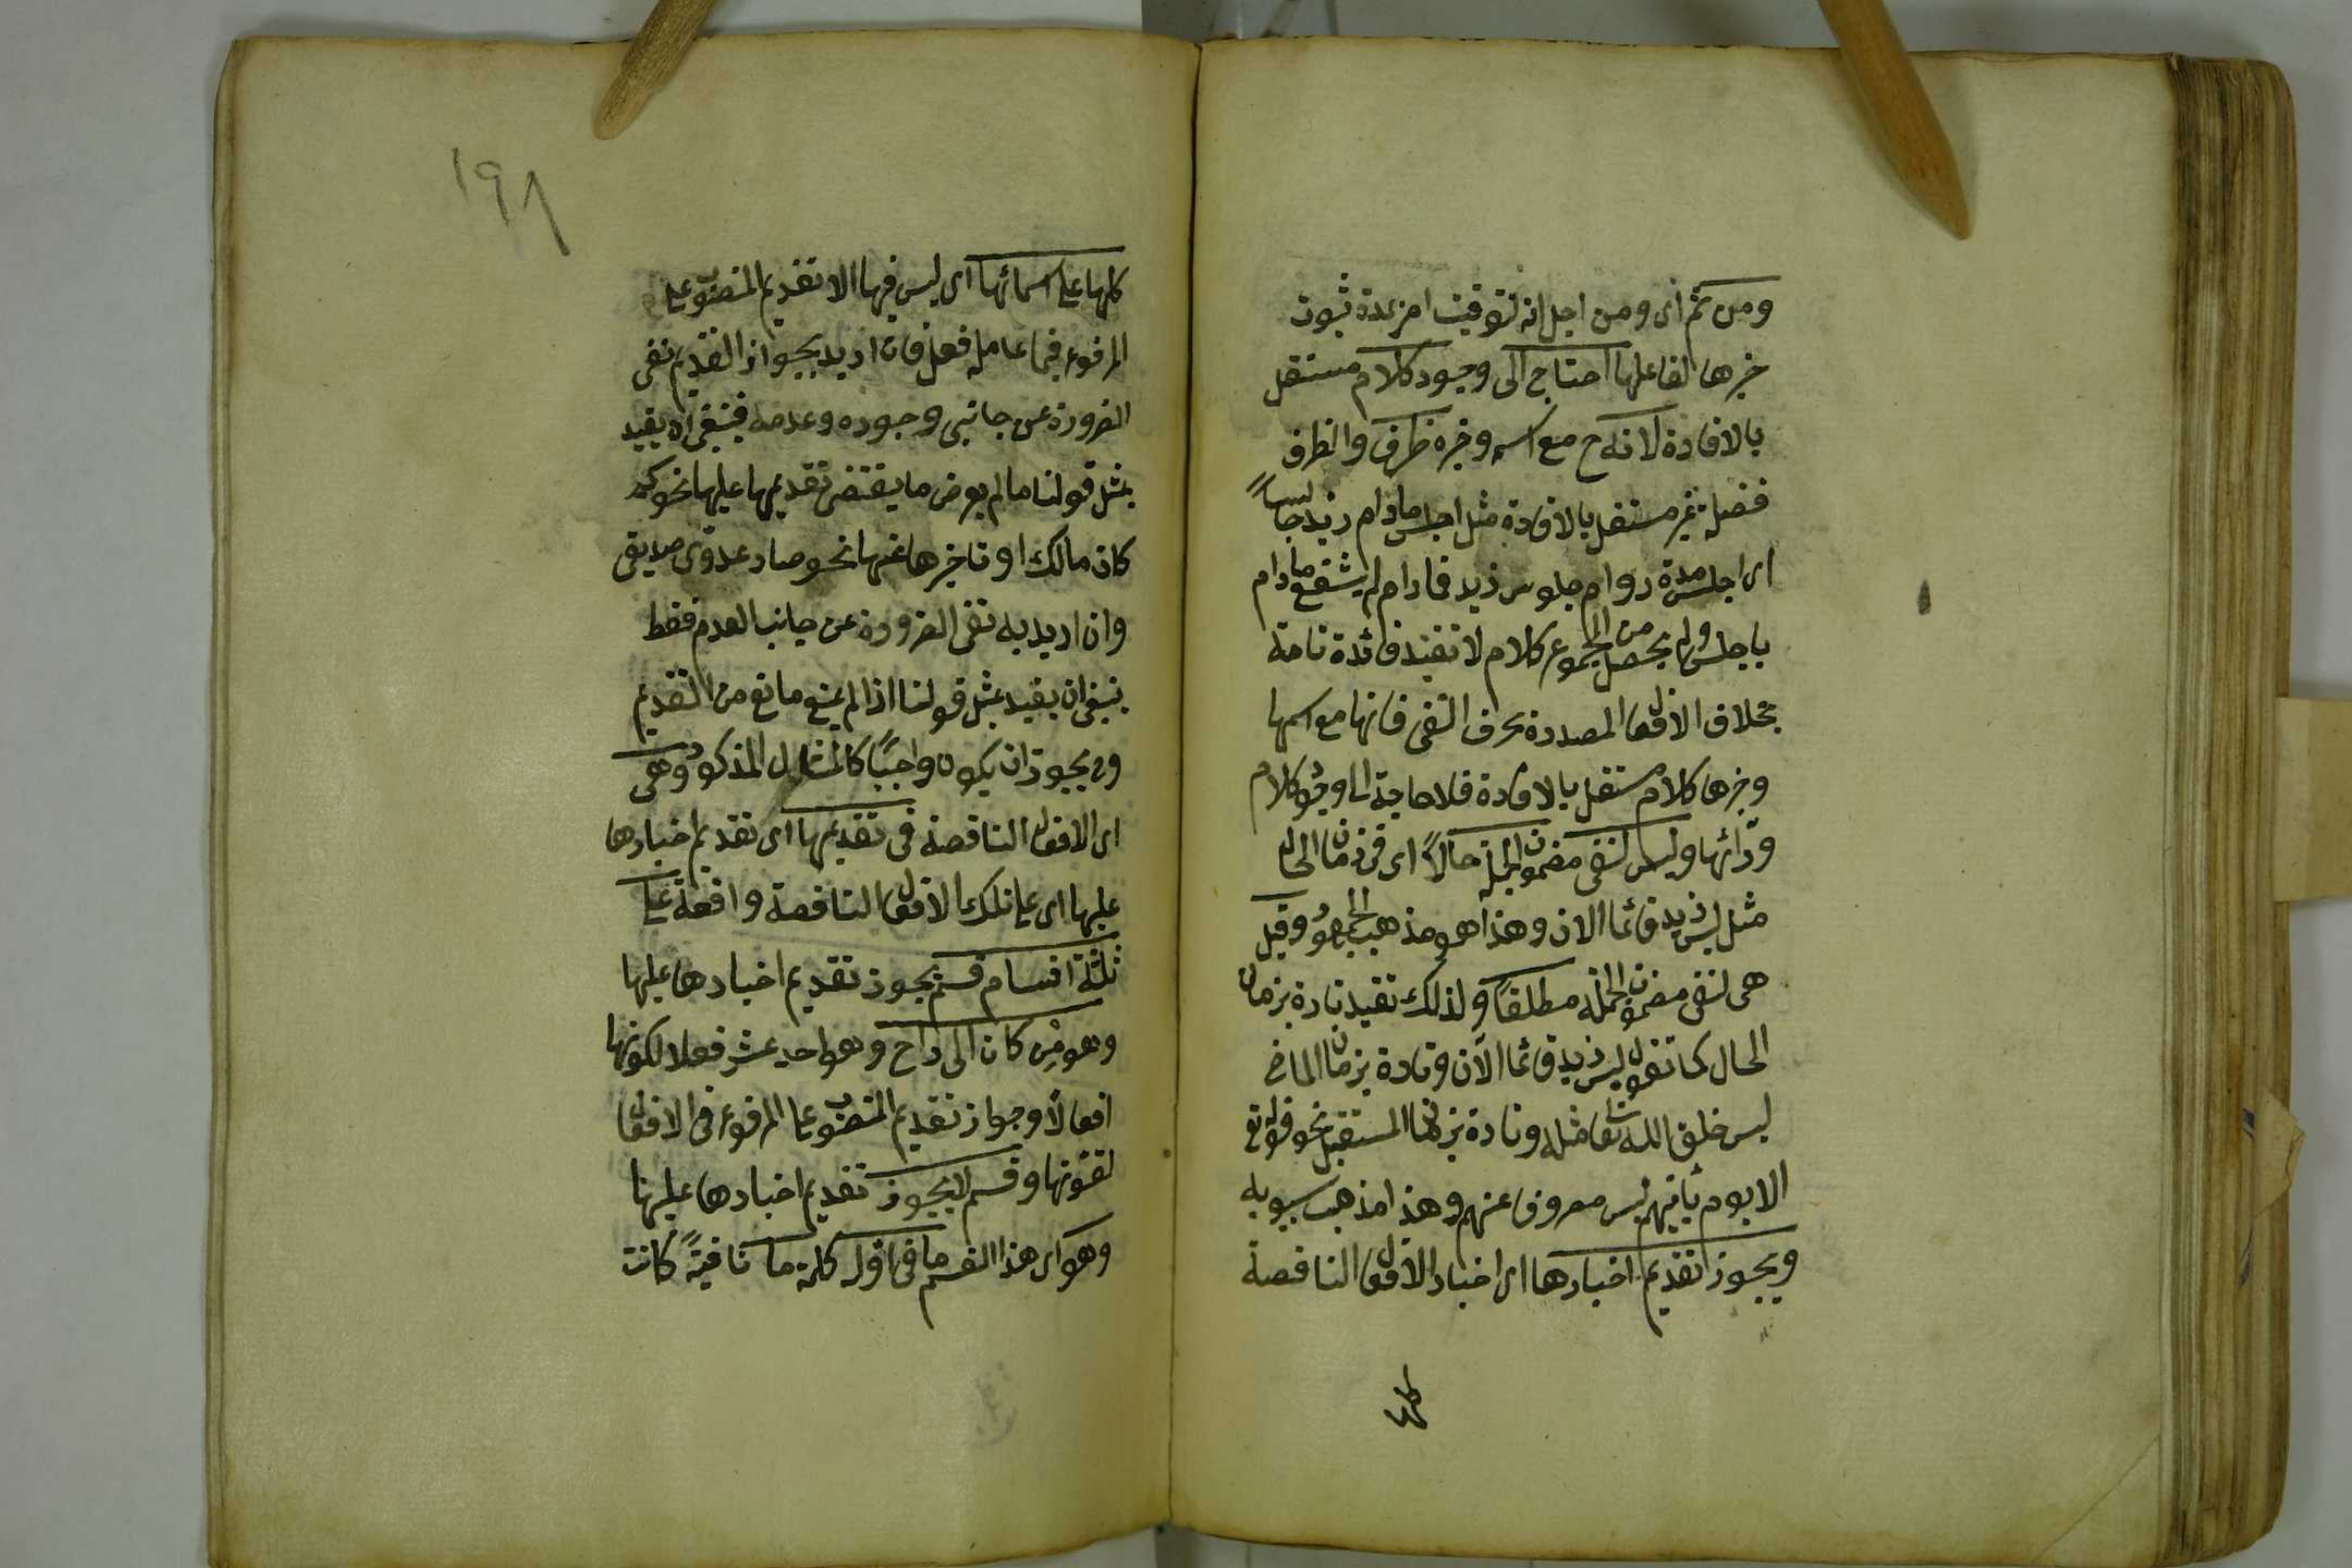 ومن ثم اى ومن اجل انه لتوقيت امر بمدة ثبوت
خبرها لفاعلها احتاج الى وجود كلام مستقل
بالافادة لانه ح مع اسمه وخبره ظرف والظرف
فضلة غير مستقل بالافادة مثل اجلس مادام زيد جالساً
اى اجلس مدة دوام جلوس زيد فمادام لم يشفع مادام
باجلس ولم يحصل من المجموع كلام لا تفيد فائدة تامة
بخلاف الافعال المصدرة بحرف النفى فانها مع اسمها
وخبرها كلام مستقل بالافادة فلا حاجة الى وجود كلام
ورائها وليس لنفى مضمون الجملة حالاً اى فى زمان الحال
مثل ليس زيد قائما الان وهذا هو مذهب الجمهور وقيل
هى لنفى مضمون الجملة مطلقاً ولذلك تقيد تارة بزمان
الحال كما تقول ليس زيد قائما الآن وتارة بزمان الماضى
ليس خلق الله تعالى مثله وتارة بزمان المستقبل نحو قوله تع
الا يوم ياتيهم ليس مصروفا عنهم وهذا مذهب سيبويه
ويجوز تقديم اخبارها اى اخبار الافعال الناقصة
كلها
١٩٨
كلها على اسمائها اى ليس فيها الا تقديم المنصوب على
المرفوع فيما عامله فعل فان اريد بجواز التقديم نفى
الضرورة عن جانبى وجوده وعدمه فينبغى ان يقيد
بمثل قولنا ما لم يعرض ما يقتضى تقديمها عليها نحو كم
كان مالك او تاخيرها عنها نحو صار عدوى صديقى
وان اريد به نفى الضرورة عن جانب العدم فقط
ينبغى ان يقيد بمثل قولنا اذا لم يمنع مانع من التقديم
وح يجوز ان يكون واجباً كالمثال المذكور وهى
اى الافعال الناقصة فى تقديمها اى تقديم اخبارها
عليها اى على تلك الافعال الناقصة واقعة على
ثلثة اقسام قسم يجوز تقديم اخبارها عليها
وهو من كان الى راح وهو احد عشر فعلا لكونها
افعالاً وجواز تقديم المنصوب على المرفوع فى الافعال
لقوتها وقسم لا يجوز تقديم اخبارها عليها
وهو اى هذا القسم ما فى اوله كلمة ما نافيةً كانت